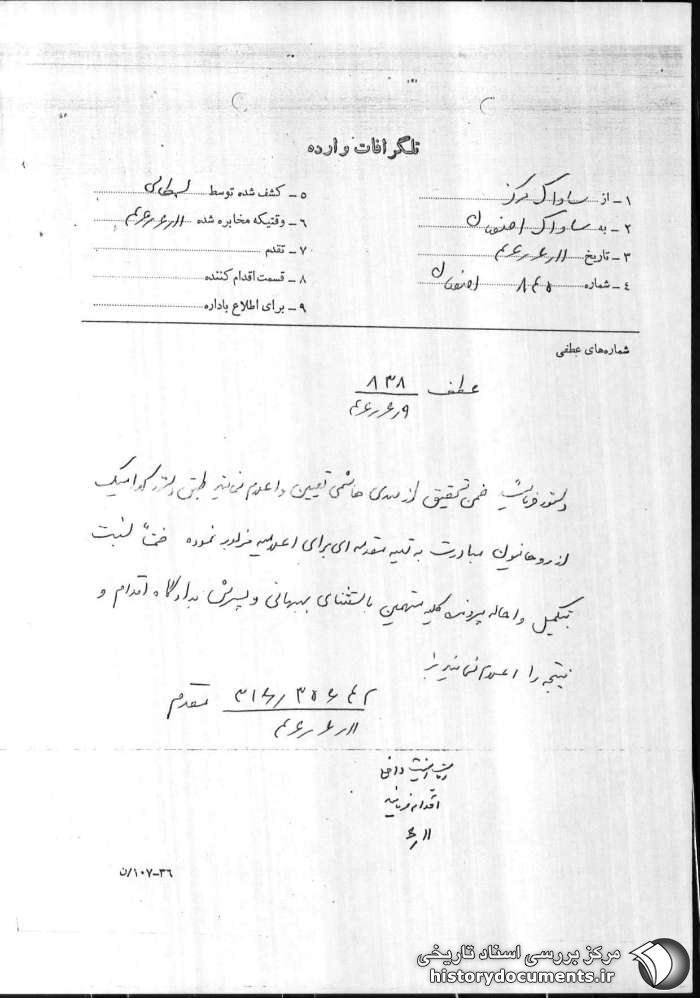 تلگرافات وارده
۱ ـ از ساواک مرکز
۲ ـ به ساواک اصفهان
۳ ـ تاریخ ۱۱ر۶ر۴۶
۴ ـ شماره ۸۴۵ اصفهان
۵ ـ کشف شده توسط
۶ ـ وقتیکه مخابره شده ۱۱ر۶ر۴۶
۷ ـ تقدم
۸ ـ قسمت اقدام کننده
۹ ـ برای اطلاع باداره
شماره‌های عطفی
عطف ۸۳۸
۹ر۶ر۴۶
دستور فرمائید ضمن تحقیق از مهدی هاشمی تعیین و اعلام نمایند طبق دستور کدامیک
از روحانیون مبادرت به تهیه مقدمه‌ای برای اعلامیه مزبور نموده ضمناً نسبت
بتکمیل و احاله پرونده کلیه متهمین باستثنای بهبهانی و پسرش بدادگاه اقدام و
نتیجه را اعلام نمایند
۳۱۶/۳۵۶۴۲ مقدم
۱۱ر۶ر۴۶
امنیت داخلی
اقدام فرمائید
۱۱ر۶
۳۶-۱۰۷/ن
مرکز بررسی اسناد تاریخی
historydocuments.ir